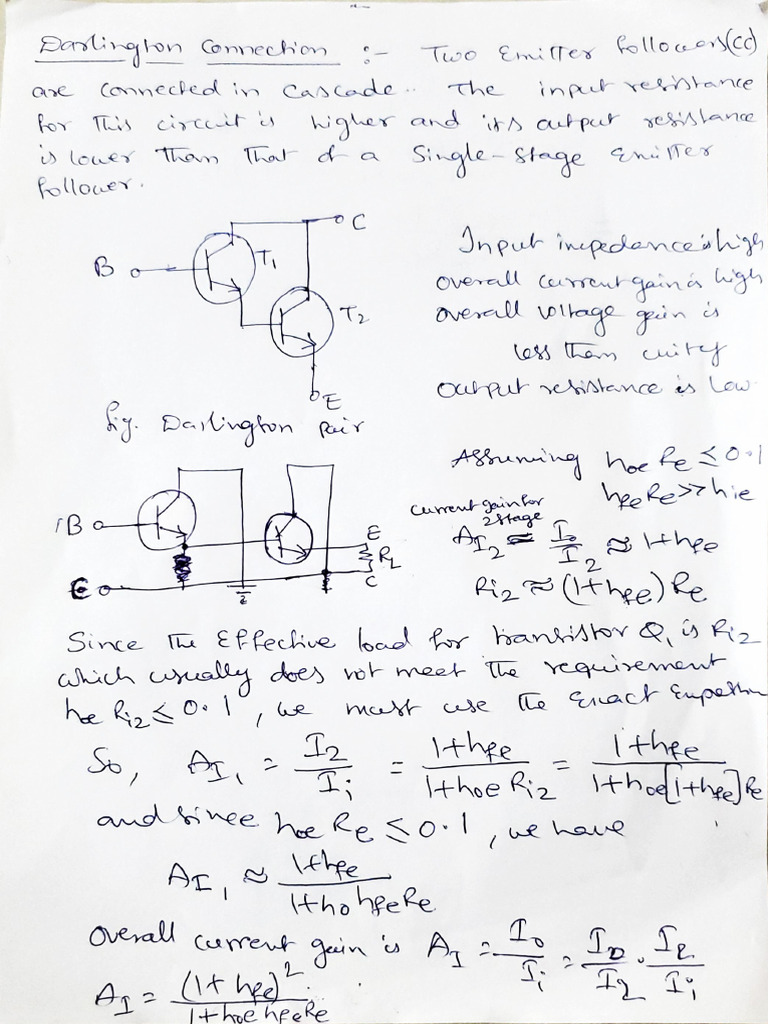 Darlington Connection :- Two Emitter followers (CC)
are connected in Cascade.. The input resistance
for this circuit is higher and its output resistance
is lower than that of a Single-Stage Emitter
follower.
C
B
T1
T2
E
fig. Darlington pair
Input impedance is high
overall current gain is high
overall voltage gain is
less than unity
output resistance is low.
Assuming hoe Re ≤ 0.1
hfe Re >> hie
current gain for
2 stage
AI2 = Io/I2 ≈ 1+hfe
Ri2 ≈ (1+hfe) Re
B
E
RL
C
Since the Effective load for transistor Q1 is Ri2
which usually does not meet the requirement
hoe Ri2 ≤ 0.1, we must use the Exact
So, AI1 = I2/Ii = 1+hfe/1+hoe Ri2 = 1+hfe/1+hoe[1+hfe]Re
and since hoe Re ≤ 0.1, we have
AI1 ≈ 1+hfe/1+ho hfe Re
Overall current gain is AI = Io/Ii = Io/I2 . I2/Ii
AI = (1+hfe)²/1+hoe hfe Re